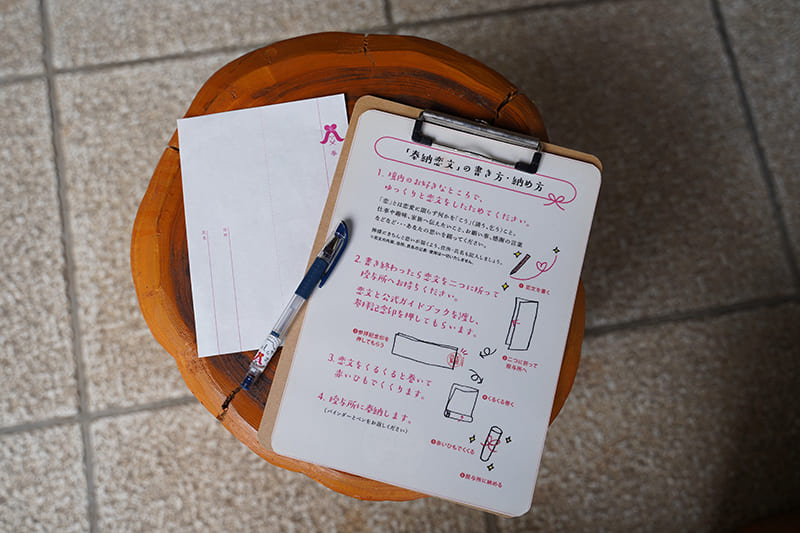 「奉納恋文」の書き方・納め方
1. 境内のお好きなところで、
ゆっくりと恋文をしたためてください。
「恋」とは恋愛に限らず何かを「こう」(請う、乞う)こと。
仕事や趣味、家族へ伝えたいこと、お願い事、感謝の言葉
などなど・・・あなたの思いを綴ってください。
神様にきちんと思いが届くよう、住所・氏名も記入しましょう。
2. 書き終わったら恋文を二つに折って
授与所へお持ちください。
恋文と公式ガイドブックを渡し、
参拝記念印を押してもらいます。
3. 恋文をくるくると巻いて
赤いひもでくくります。
4. 授与所に奉納します。
(バインダーとペンをお返しください)
恋文を書く
二つに折って
授与所へ
参拝記念印を
押してもらう
くるくる巻く
赤いひもでくくる
授与所に納める